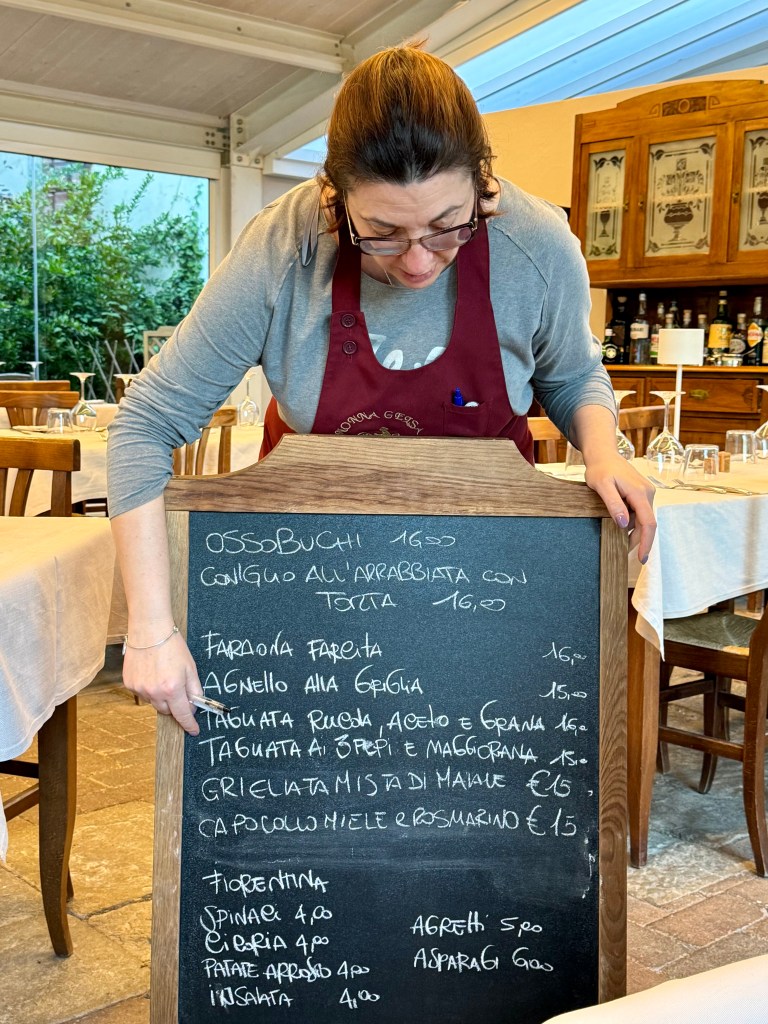 NONNA GELSA
OSSOBUCHI 16,00
CONIGLIO ALL'ARRABBIATA CON
TORTA 16,00
FARAONA FARCITA 16,00
AGNELLO ALLA GRIGLIA 15,00
TAGLIATA RUCOLA, ACETO E GRANA 16,00
TAGLIATA AI 3 PEPI E MAGGIORANA 15,00
GRIGLIATA MISTA DI MAIALE €15
CAPOCOLLO MIELE e ROSMARINO €15
FIORENTINA
SPINACI 4,00
CICORIA 4,00
PATATE ARROSTO 4,00
INSALATA 4,00
AGRETTI 5,00
ASPARAGI 6,00